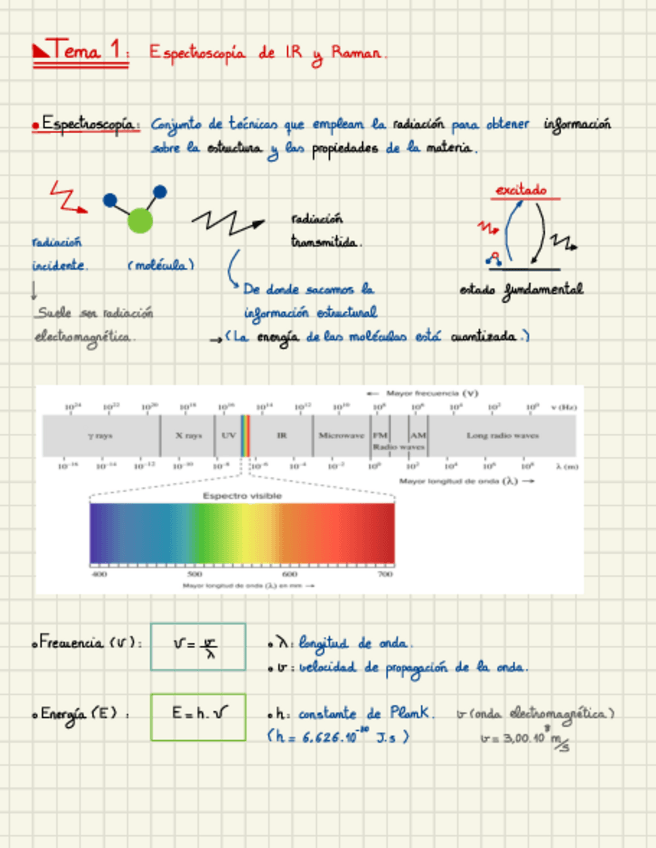 Tema 1: Espectroscopía de IR y Raman.
• Espectroscopía: Conjunto de técnicas que emplean la radiación para obtener información
sobre la estructura y las propiedades de la materia.
excitado
radiación
incidente.
(molécula)
radiación
transmitida.
Suele ser radiación
electromagnética.
De donde sacamos la
información estructural
→ (La energía de las moléculas está cuantizada.)
estado fundamental
← Mayor frecuencia (ν)
10²⁴ 10²² 10²⁰ 10¹⁸ 10¹⁶ 10¹⁴ 10¹² 10¹⁰ 10⁸ 10⁶ 10⁴ 10² 10⁰ ν (Hz)
γ rays X rays UV IR Microwave FM AM Long radio waves
Radio waves
10⁻¹⁶ 10⁻¹⁴ 10⁻¹² 10⁻¹⁰ 10⁻⁸ 10⁻⁶ 10⁻⁴ 10⁻² 10⁰ 10² 10⁴ 10⁶ 10⁸ λ (m)
Mayor longitud de onda (λ) →
Espectro visible
400 500 600 700
Mayor longitud de onda (λ) en nm →
• Frecuencia (ν): ν = v/λ • λ: longitud de onda.
• v: velocidad de propagación de la onda.
• Energía (E): E = h. ν • h: constante de Plank. v (onda electromagnética)
(h = 6,626.10 J.s) v = 3,00.10⁸ m/s